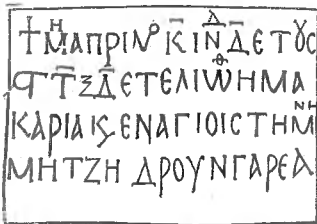 †ΜΗΑΠΡΙΛΟ Κ̅ ΙΝΔ Δ̅ ΕΤȣС
ϚΤ̅ΞΔ̅ΕΤΕΛΙΩΘΗΜΑ
ΚΑΡΙΑΚϚΕΝΑΓΙΟΙСΤΗΜΝΗ
ΜΗΤΖΗ ΔΡΟΥΝΓΑΡΕΑ